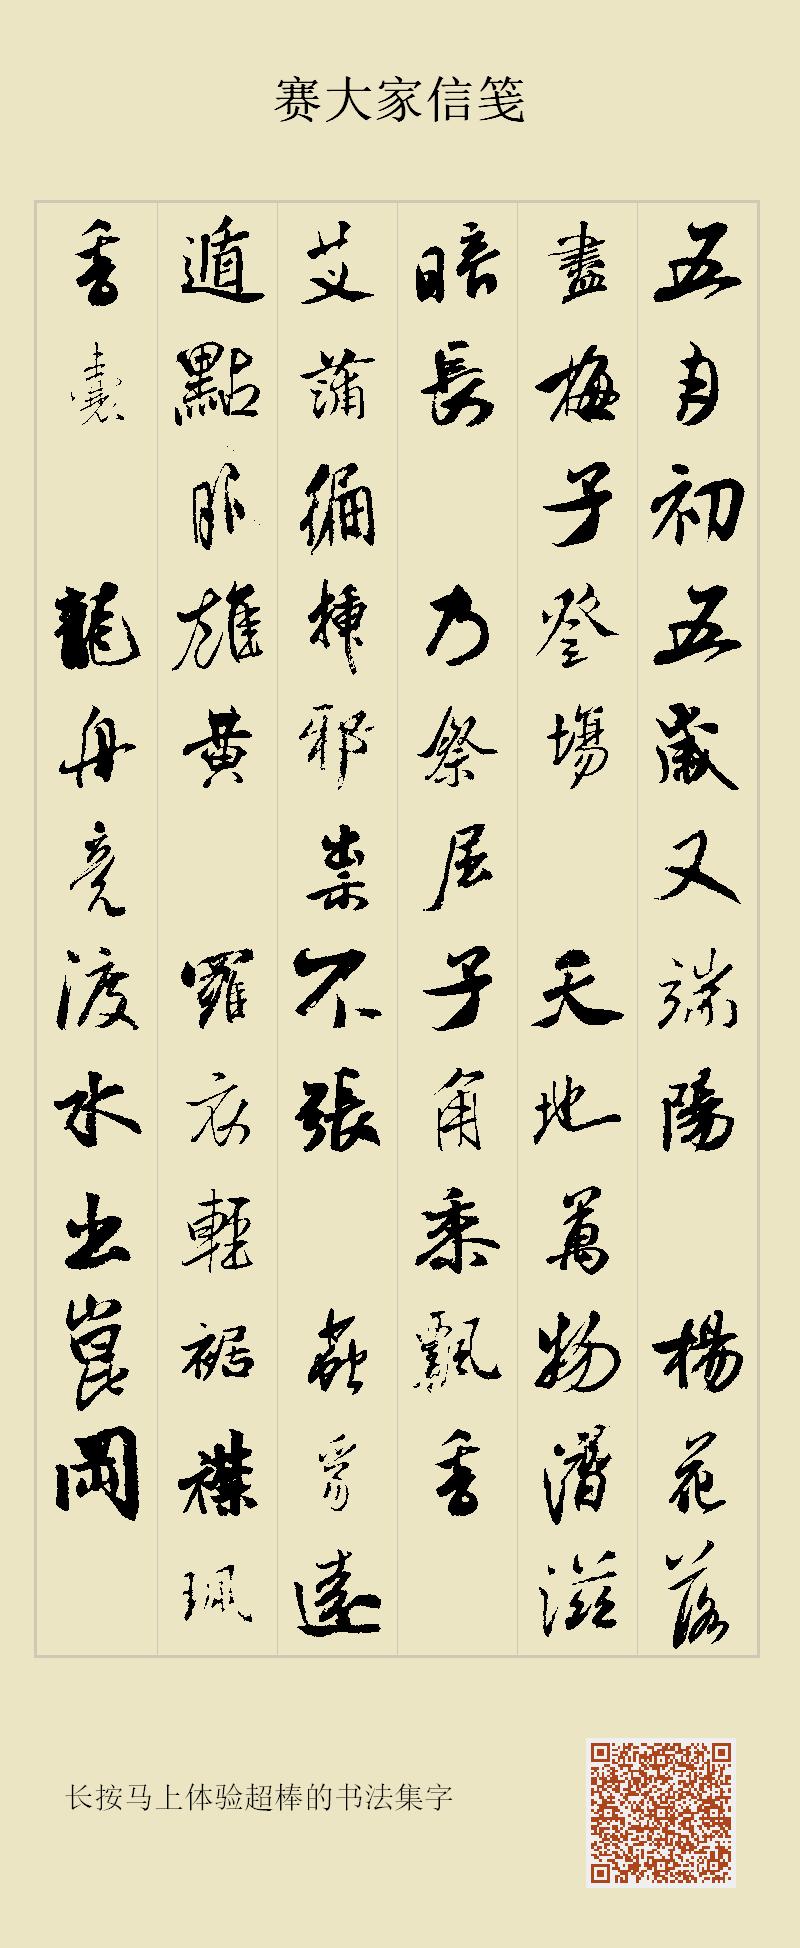 赛大家信笺
五月初五歲又端陽 楊花落
盡梅子登場 天地萬物潛滋
暗長 乃祭屈子角黍飄香
艾蒲徧插邪祟不張 蟲豸遠
遁點眼雄黃 羅衣輕裾襟珮
香囊 龍舟競渡水出崑岡
长按马上体验超棒的书法集字